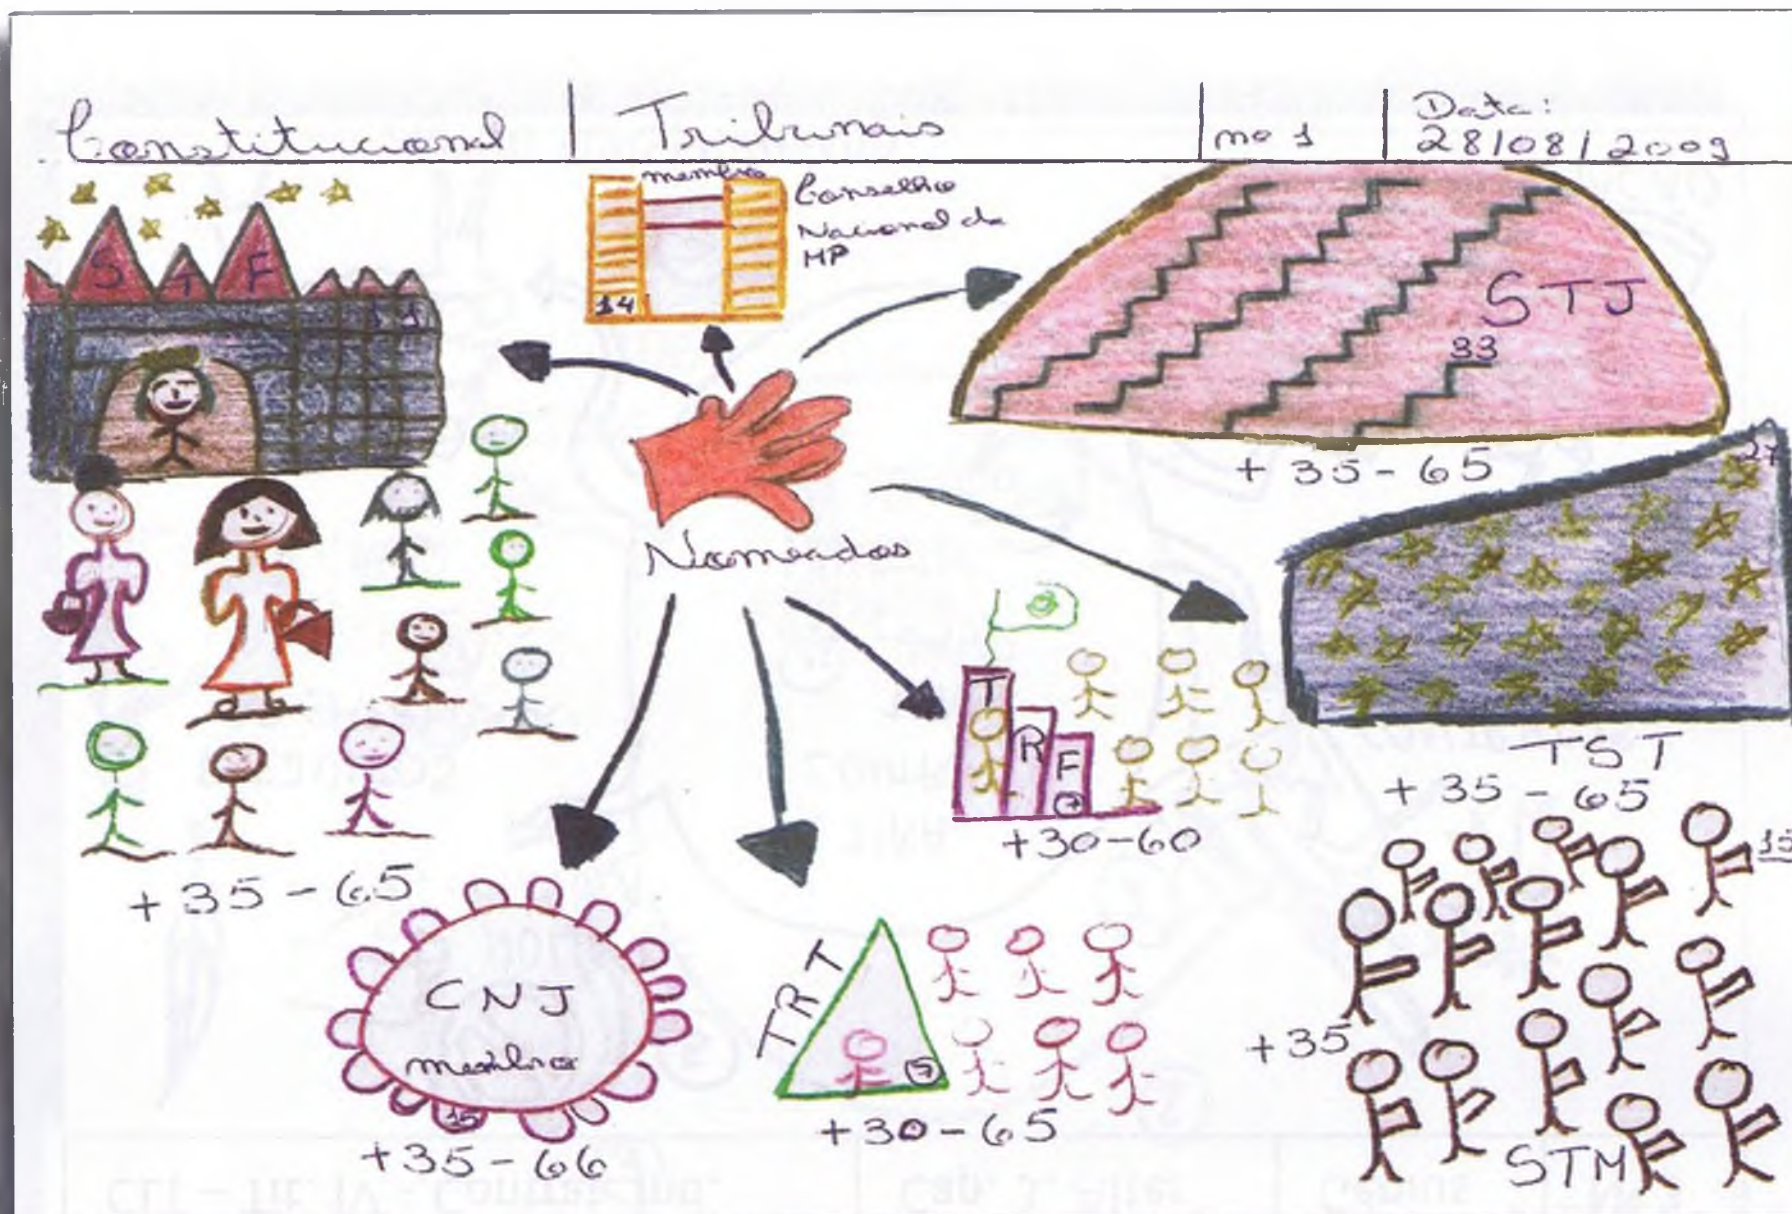 Constitucional
Tribunais
nº 1
Data:
28/08/2009
S T F
11
membro
Conselho
Nacional do
MP
14
STJ
33
+35-65
27
TST
+35-65
Nomeados
+35-65
T
R
F
7
+30-60
CNJ
membros
15
+35-66
TRT
7
+30-65
15
+35
STM